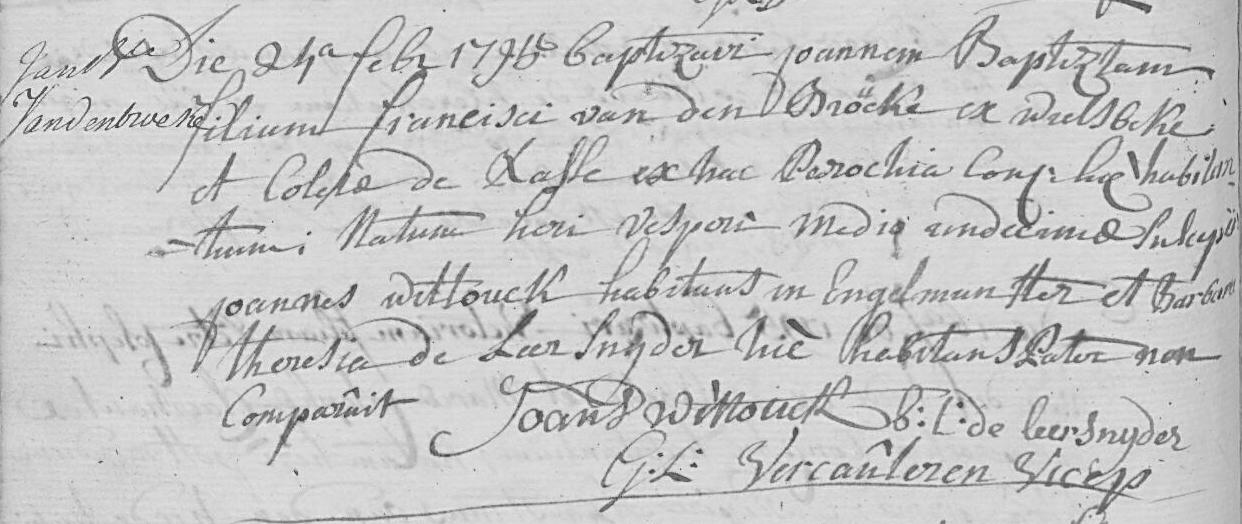 Die 24a febr 1794 baptizavi joannem Baptiztam
Vandenbroeke filium francisci van den Bröcke ex wielsbeke
et Coletæ de Kasse ex hac Parochia Conj: hic habitan
tium: Natum heri vesperi media undecimæ Suscep:
joannes wittouck habitans in Engelmunster et Barbara
theresia de Leersnyder hic habitans Pater non
Comparûit Joans Wittouck b: t: de leersnyder
G: L: Vercaûteren Vicep